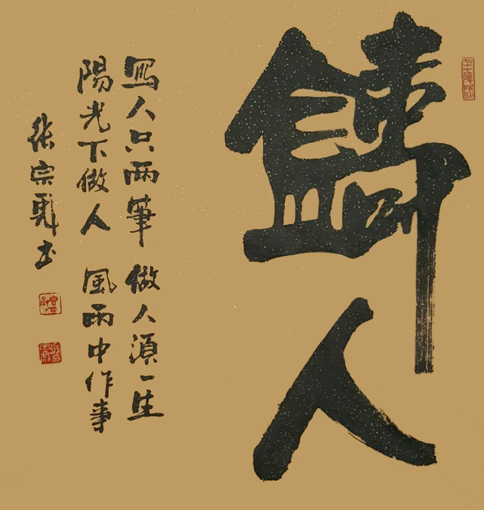 鑄人
寫人只兩筆 做人須一生
陽光下做人 風雨中作事
宗彪书